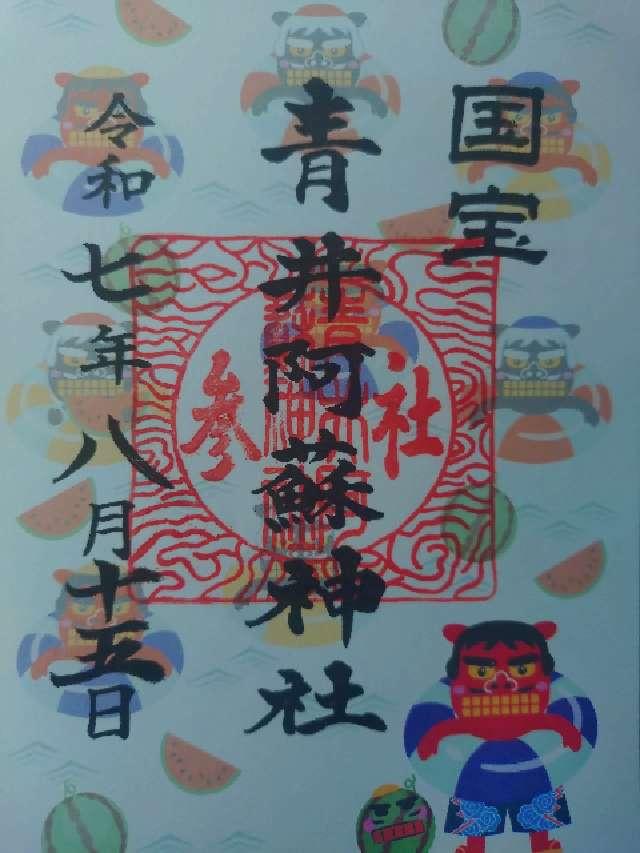 国宝
青井阿蘇神社
社参
令和七年八月十五日